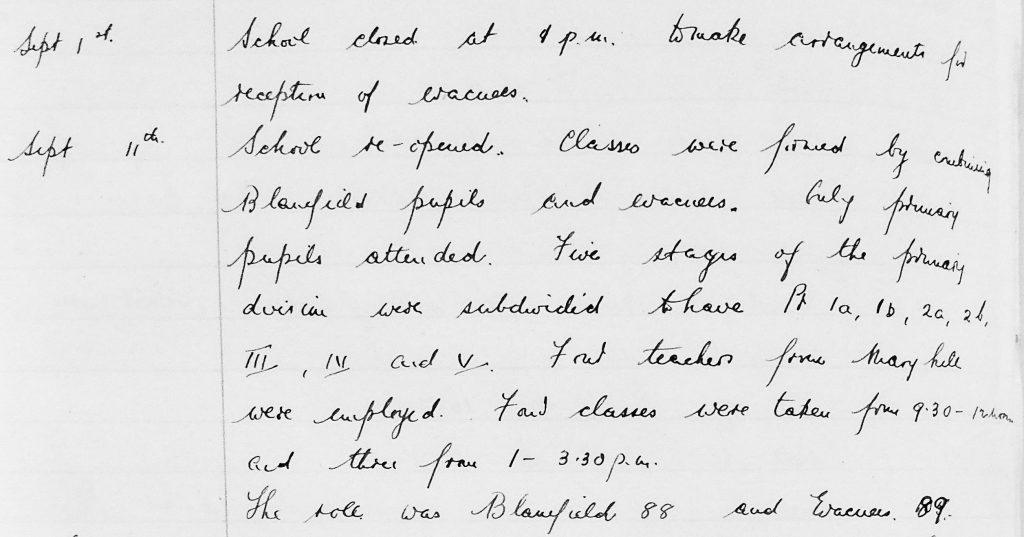 Sept 1st. School closed at 1 p.m. to make arrangements for
reception of evacuees.
Sept 11th. School re-opened. Classes were formed by combining
Blanefield pupils and evacuees. Only primary
pupils attended. Five stages of the primary
division were subdivided to have Pr 1a, 1b, 2a, 2b,
III, IV and V. Four teachers from Maryhill
were employed. Four classes were taken from 9.30 - 12 noon
and three from 1 - 3.30 p.m.
The roll was Blanefield 88 and Evacuees 89.